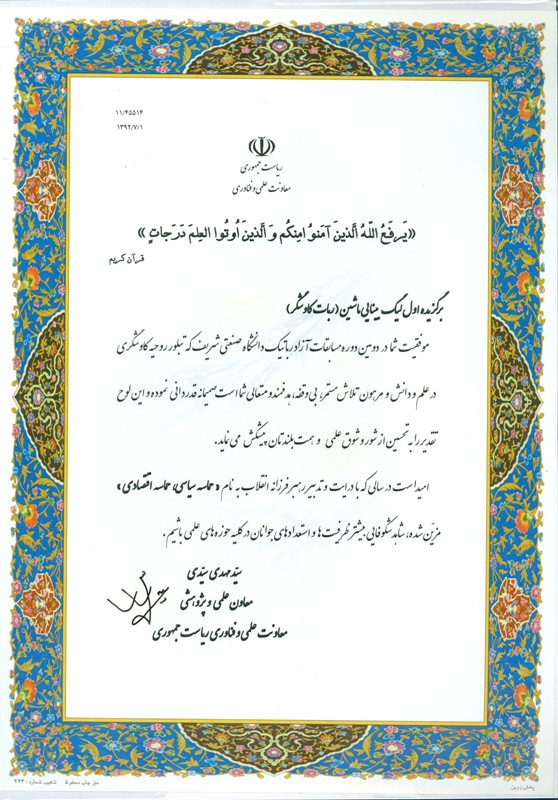 ۱۱/۴۵۵۱۴
۱۳۹۲/۷/۱
ریاست جمهوری
معاونت علمی و فناوری
«یَرفَعُ اللّهُ الَّذینَ آمَنوُ امِنکُم وَ الَّذینَ اُوتُوا العِلمَ دَرَجاتٍ»
قرآن کریم
برگزیده اول لیگ بینایی ماشین (ربات کاوشگر)
موفقیت شما در دومین دوره مسابقات آزاد رباتیک دانشگاه صنعتی شریف که تبلور روحیه کاوشگری
در علم و دانش و مرهون تلاش مستمر، بی وقفه، هدفمند و متعالی شما است صمیمانه قدردانی نموده و این لوح
تقدیر را به تحسین از شور و شوق علمی و همت بلندتان پیشکش می نماید.
امید است در سالی که با درایت و تدبیر رهبر فرزانه انقلاب به نام «حماسه سیاسی، حماسه اقتصادی»
مزین شده، شاهد شکوفایی بیشتر ظرفیت ها و استعدادهای جوانان در کلیه حوزه های علمی باشیم.
سید مهدی سیدی
معاون علمی و پژوهشی
معاونت علمی و فناوری ریاست جمهوری
حق چاپ محفوظ تذهیب شماره: ۲۲۴
پخش زرین